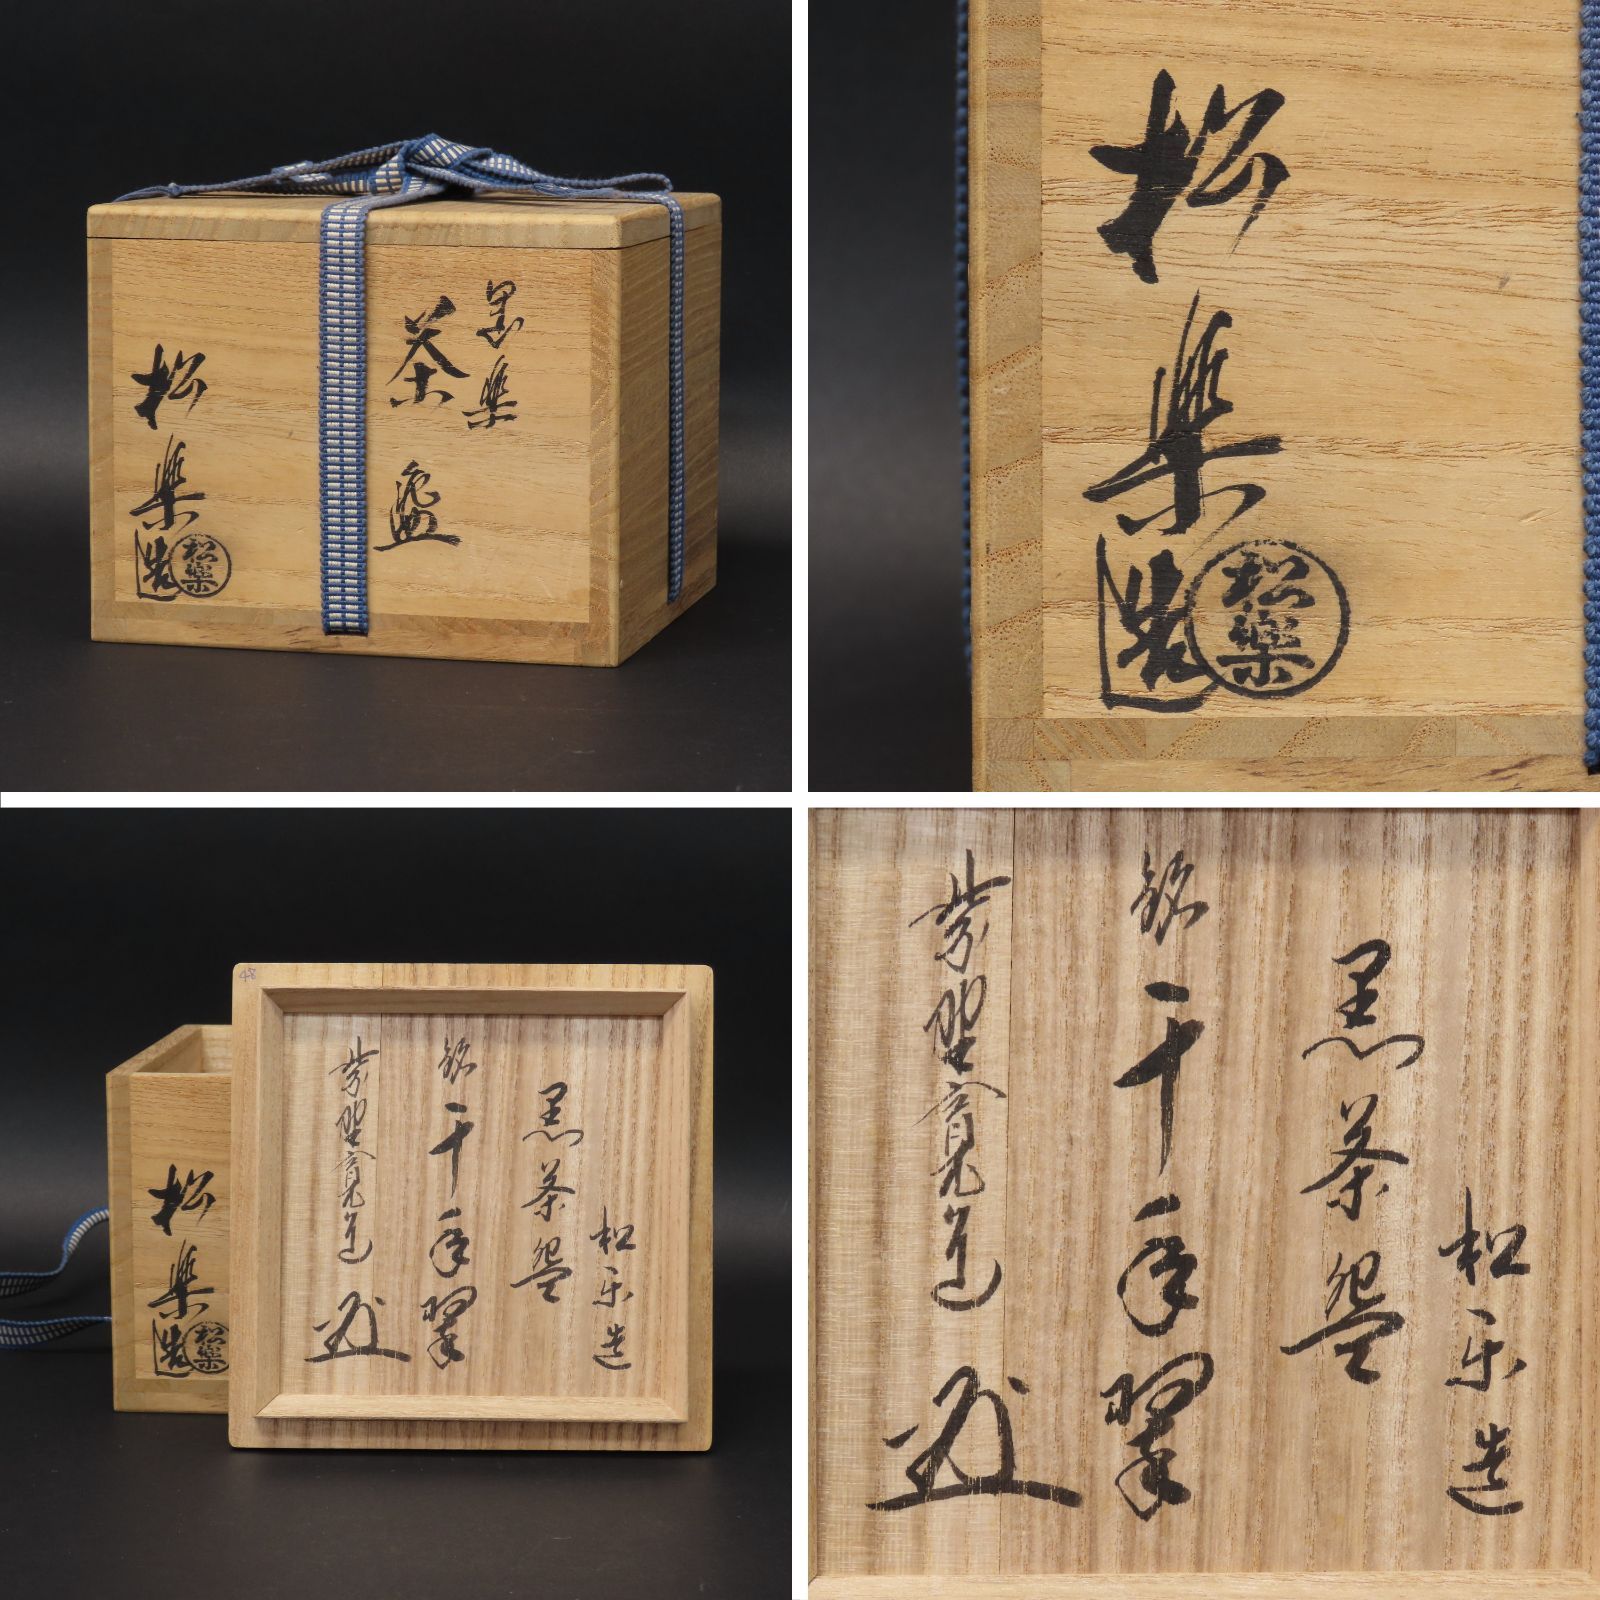 黒楽
茶盌
松楽造
松楽
松楽造
松楽
48
松楽
造
松楽
松楽造
黒茶碗
銘 千年翠
紫野寛道
松楽造
黒茶碗
銘 千年翠
紫野寛道